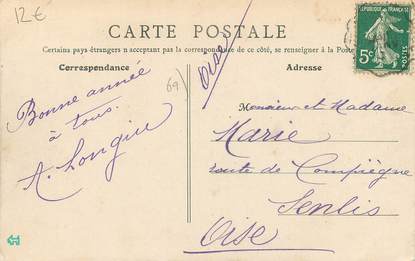 12€
CARTE POSTALE
Certains pays étrangers n'acceptant pas la correspondance de ce côté, se renseigner à la Poste
Correspondance
Adresse
RÉPUBLIQUE FRANÇAISE
5c
POSTES
Oise
69
Bonne année
à tous.
A. Longieu
Monsieur et Madame
Marie
route de Compiègne
Senlis
Oise